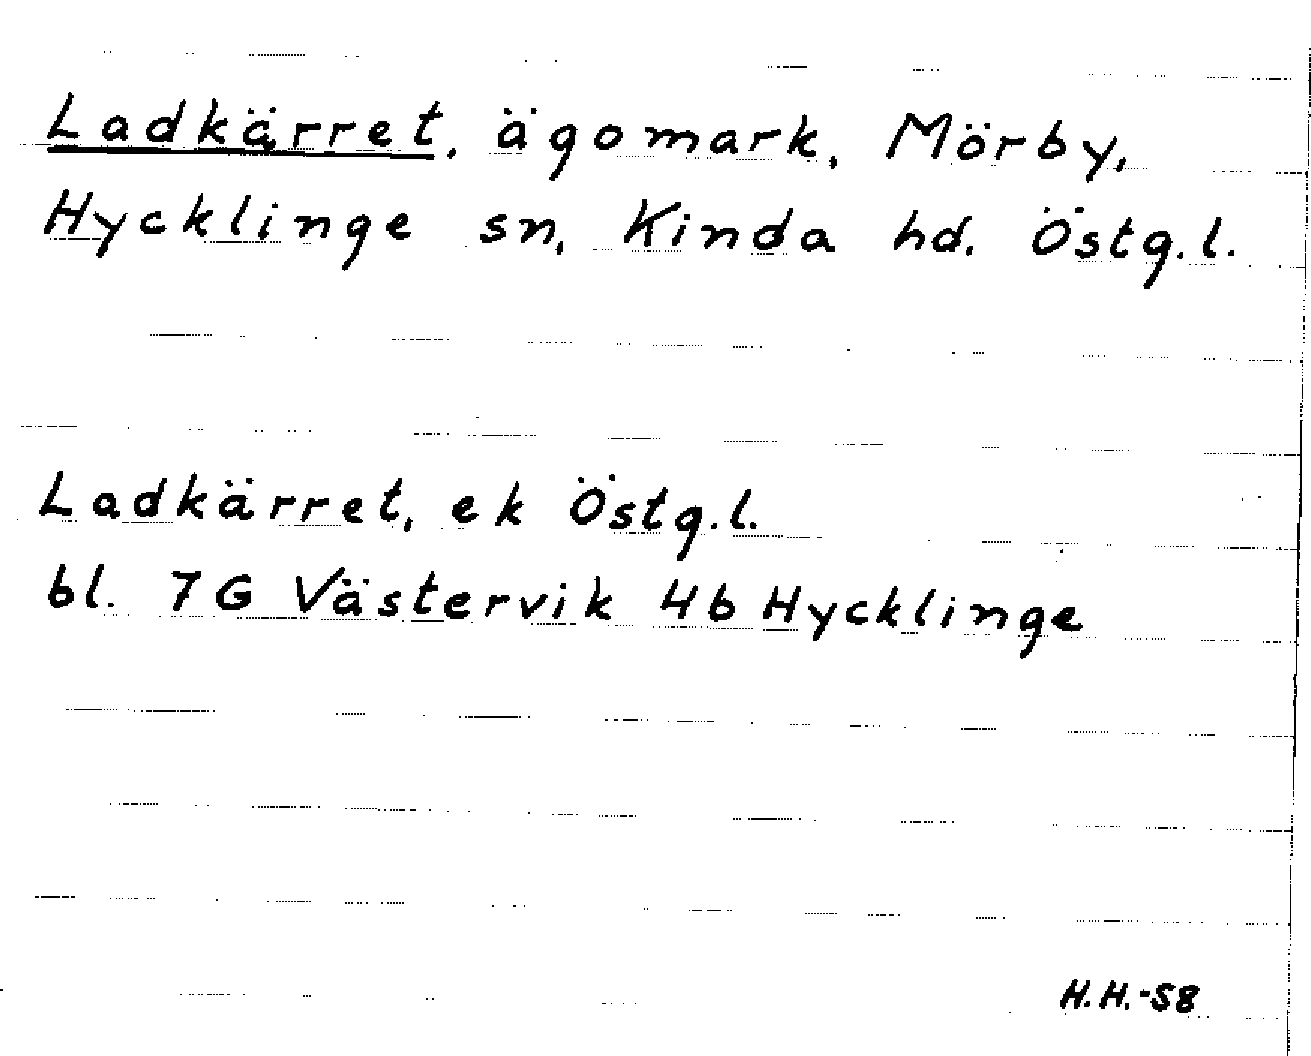 Ladkärret, ägomark, Mörby,
Hycklinge sn, Kinda hd. Östg.l.
Ladkärret, ek Östg.l.
bl. 7G Västervik 4b Hycklinge
H.H.-58